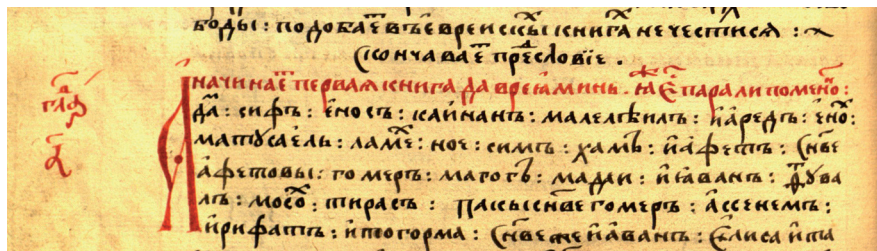 боды : подобаеⷮ въ евреискы книгⷯа не чести сѧ : ~
Сконча ваеⷮ преⷣсловїе .
глⷡа
а҃
начинаеⷮ первая книга дабреиаминь . паралипоменоⷩ :
Адаⷨ : сифъ : еносъ : каинанъ : малелѣилъ : иаредъ : еноⷯ :
матꙋсаель : ламеⷯ : ное : симъ : хамъ : иафетъ : Сн҃ве
афетовы : гомеръ : магогъ : мадаи : иаванъ : ѳꙋва
лъ : мосоⷯ : тирасъ : пакы сн҃ве гомеръ : ассенемъ :
ирифатъ : итогорма : Сн҃ве же иаванъ : Єлиса ита